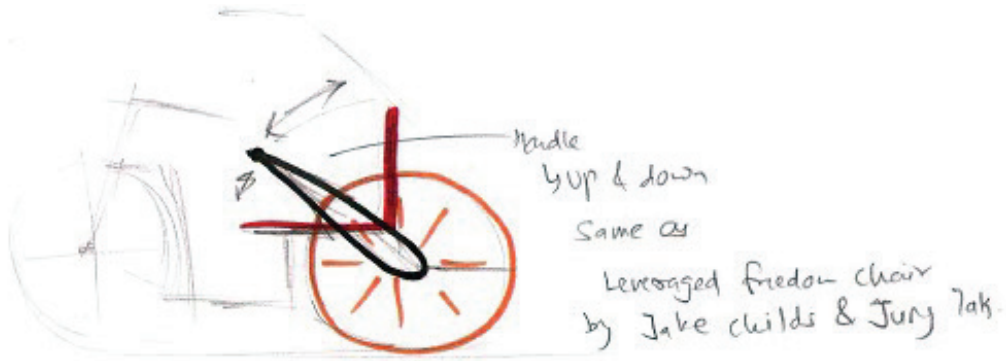 Handle
↳ up & down
Same as
Leveraged freedom chair
by Jake childs & Jung Tak.